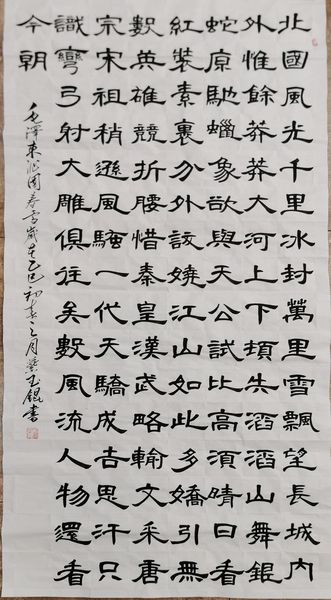 北國風光千里冰封萬里雪飄望長城內
外惟餘莽莽大河上下頓失滔滔山舞銀
蛇原馳蠟象欲與天公試比高須晴日看
紅裝素裹分外妖嬈江山如此多嬌引無
數英雄競折腰惜秦皇漢武略輸文采唐
宗宋祖稍遜風騷一代天驕成吉思汗只
識彎弓射大雕俱往矣數風流人物還看
今朝
毛澤東沁園春雪歲在乙巳初春之月玉錕書